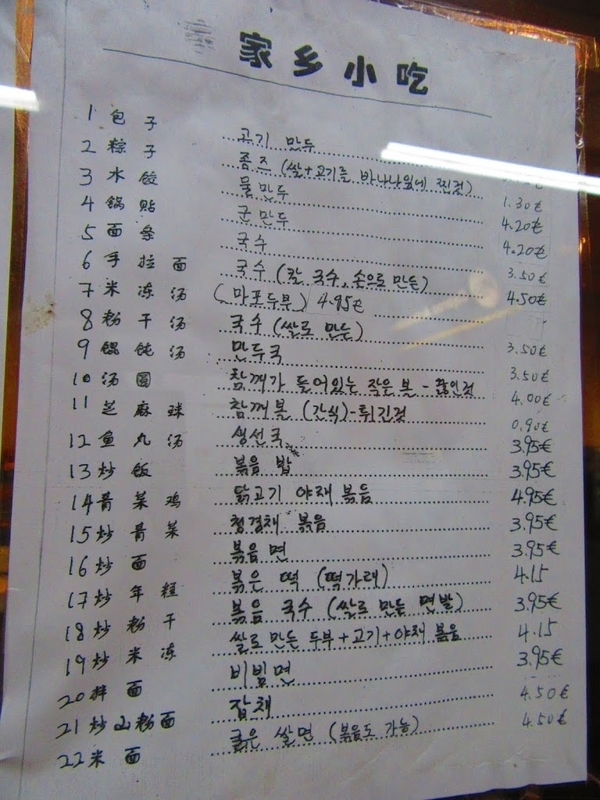 家乡小吃
1 包子 고기 만두
2 粽子 종즈 (쌀+고기를 바나나잎에 찐것) 1.30€
3 水饺 물만두 4.20€
4 锅贴 군만두 4.20€
5 面条 국수 3.50€
6 手拉面 국수 (칼 국수, 손으로 만든) 4.50€
7 米冻汤 (마포두부) 4.95€
8 粉干汤 국수 (쌀로 만든) 3.50€
9 馄饨汤 만두국 3.50€
10 汤圆 참깨가 들어있는 작은 볼 - 삶은것 4.00€
11 芝麻球 참깨볼 (간식)-튀긴것 0.90€
12 鱼丸汤 생선국 3.95€
13 炒饭 볶음 밥 3.95€
14 青菜鸡 닭고기 야채 볶음 4.95€
15 炒青菜 청경채 볶음 3.95€
16 炒面 볶음면 3.95€
17 炒年糕 볶은 떡 (떡가래) 4.15
18 炒粉干 볶음 국수 (쌀로 만든 면발) 3.95€
19 炒米冻 쌀로 만든 두부+고기+야채 볶음 4.15
20 拌面 비빔면 3.95€
21 炒山粉面 잡채 4.50€
22 米面 굵은 쌀면 (볶음도 가능) 4.50€